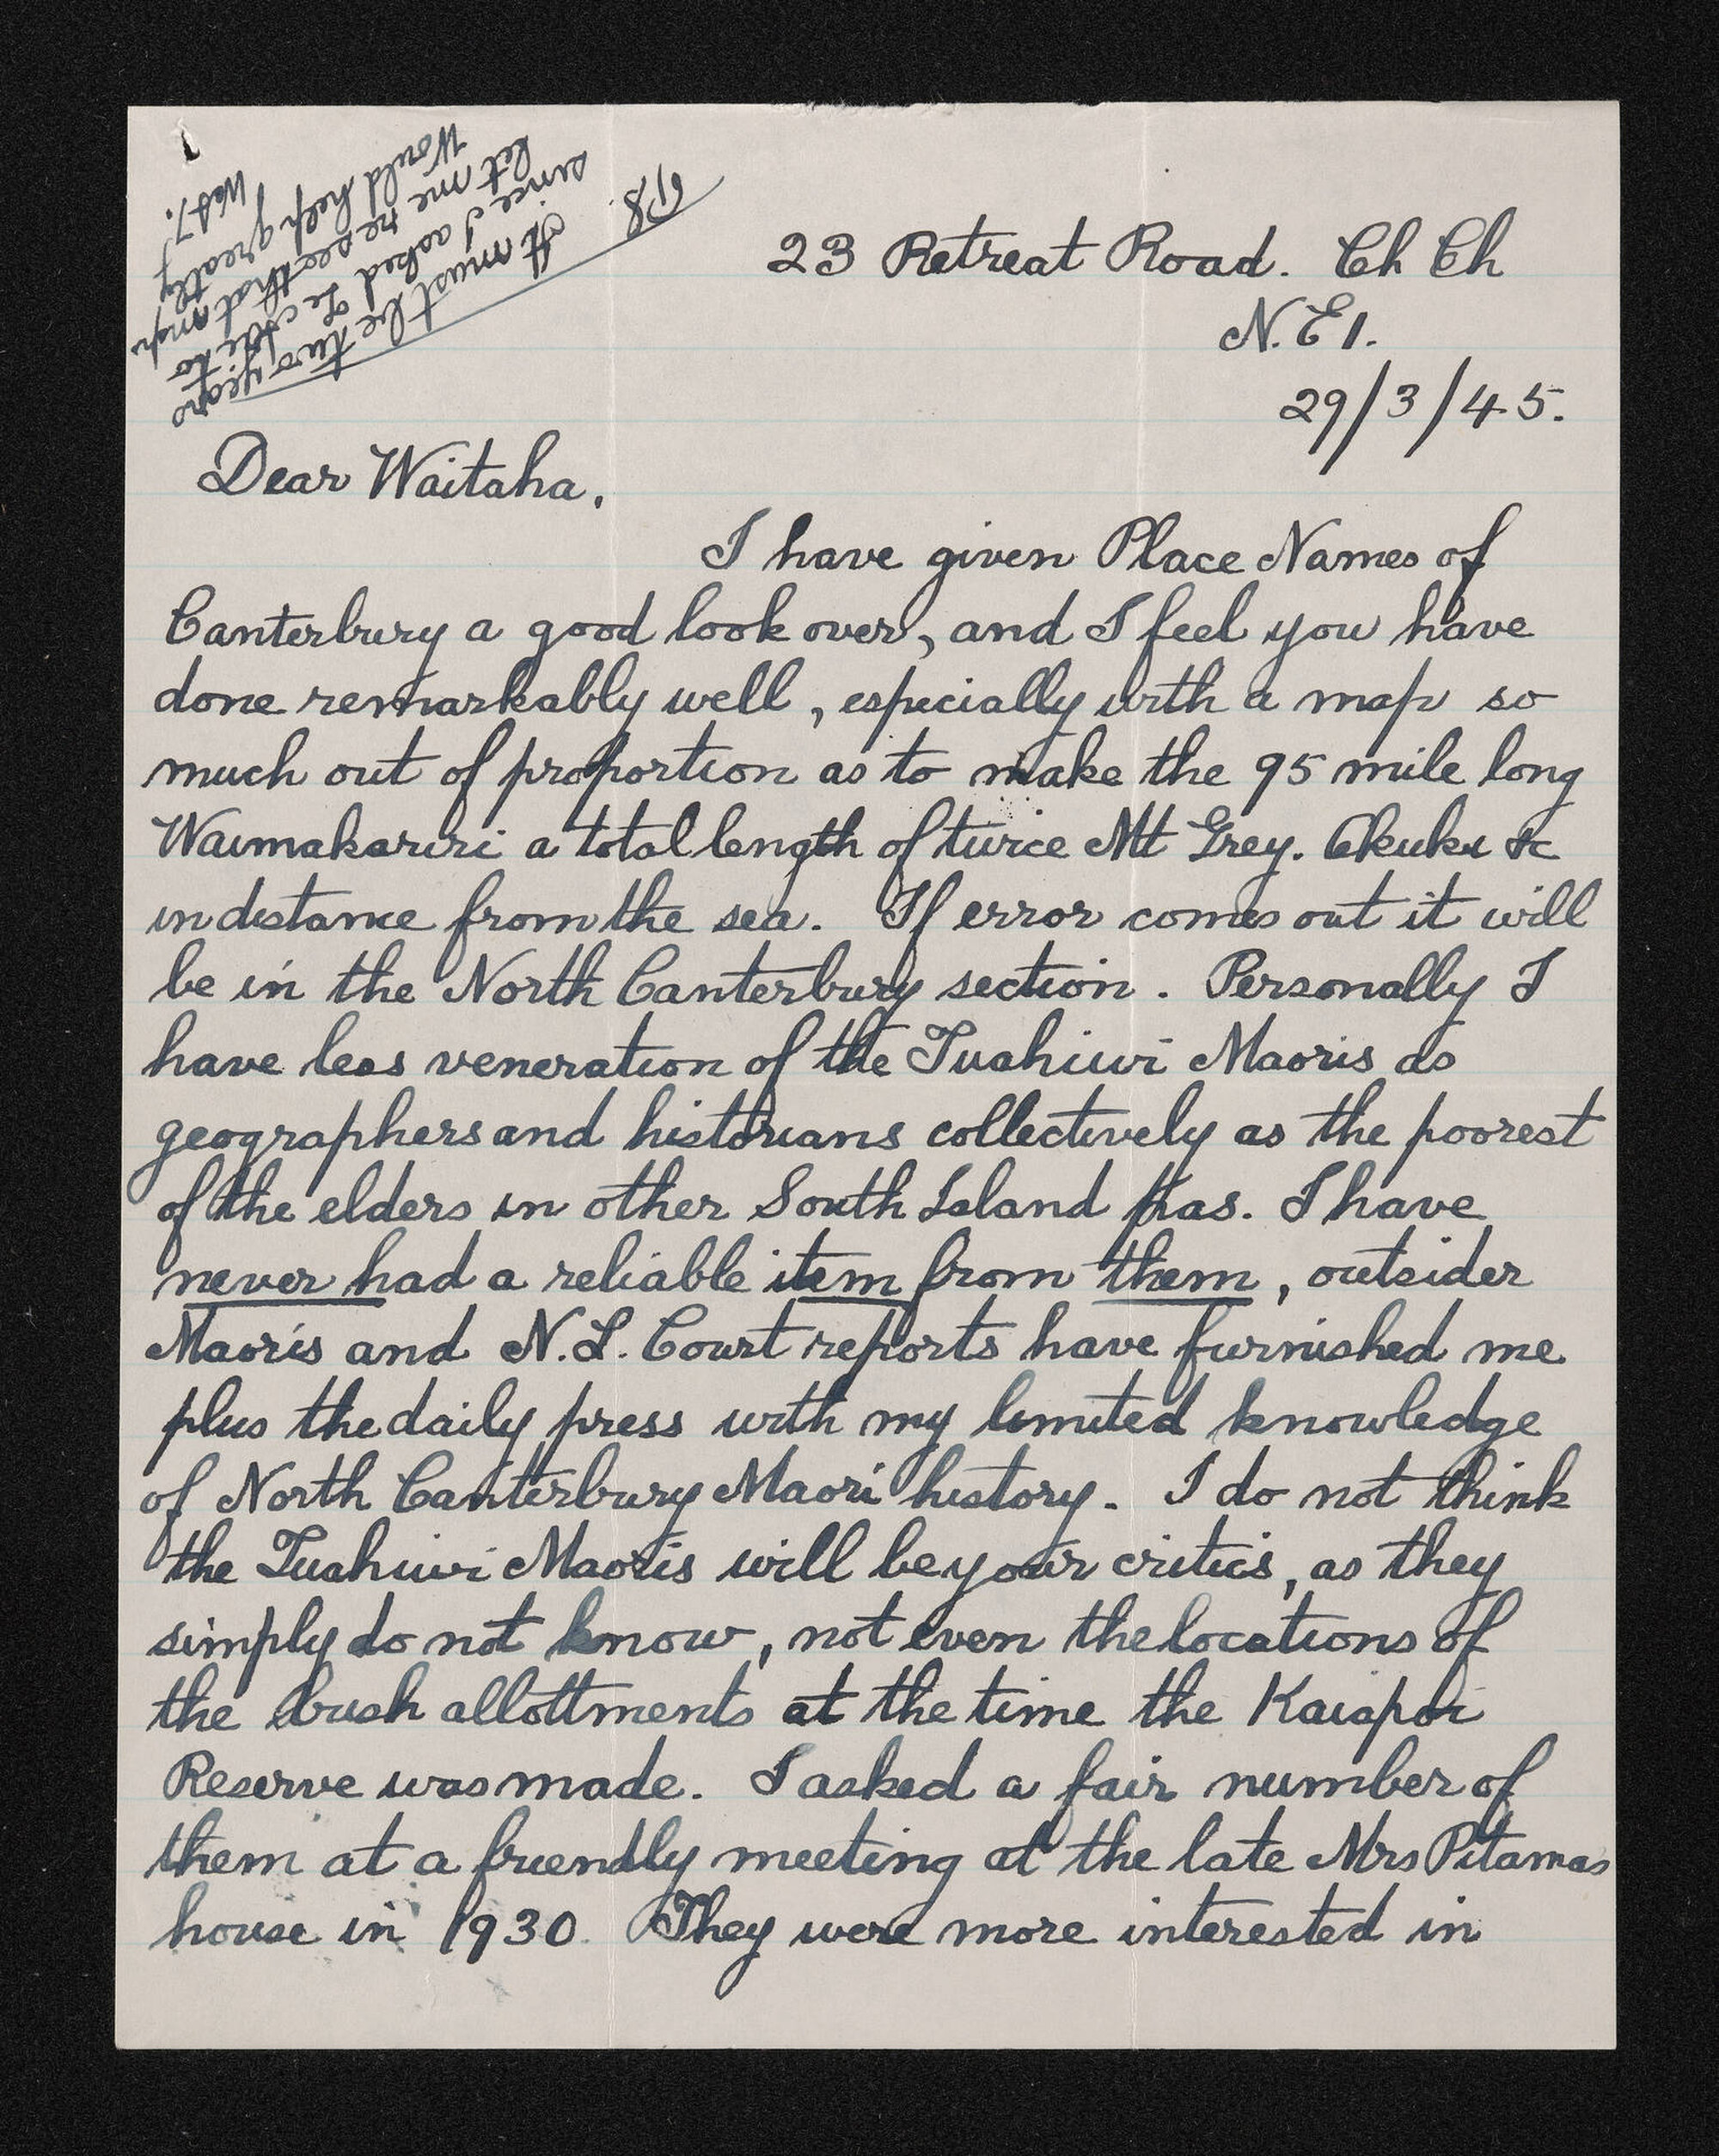 23 Retreat Road. Ch Ch
N.E1.
29/3/45.
Dear Waitaha,
I have given Place Names of
Canterbury a good look over, and I feel you have
done remarkably well, especially with a map so
much out of proportion as to make the 95 mile long
Waimakariri a total length of twice Mt Grey. Okuku &c
in distance from the sea. If error comes out it will
be in the North Canterbury section. Personally I
have less veneration of the Tuahiwi Maoris as
geographers and historians collectively as the poorest
of the elders in other South Island Pas. I have
never had a reliable item from them, outsider
Maoris and N.L. Court reports have furnished me
plus the daily press with my limited knowledge
of North Canterbury Maori history. I do not think
the Tuahiwi Maoris will be your critics, as they
simply do not know, not even the locations of
the bush allottments at the time the Kaiapoi
Reserve was made. I asked a fair number of
them at a friendly meeting at the late Mrs Pitamas
house in 1930. They were more interested in
PS.
It must be two years
since I asked Te to
let me see that map
Would help greatly